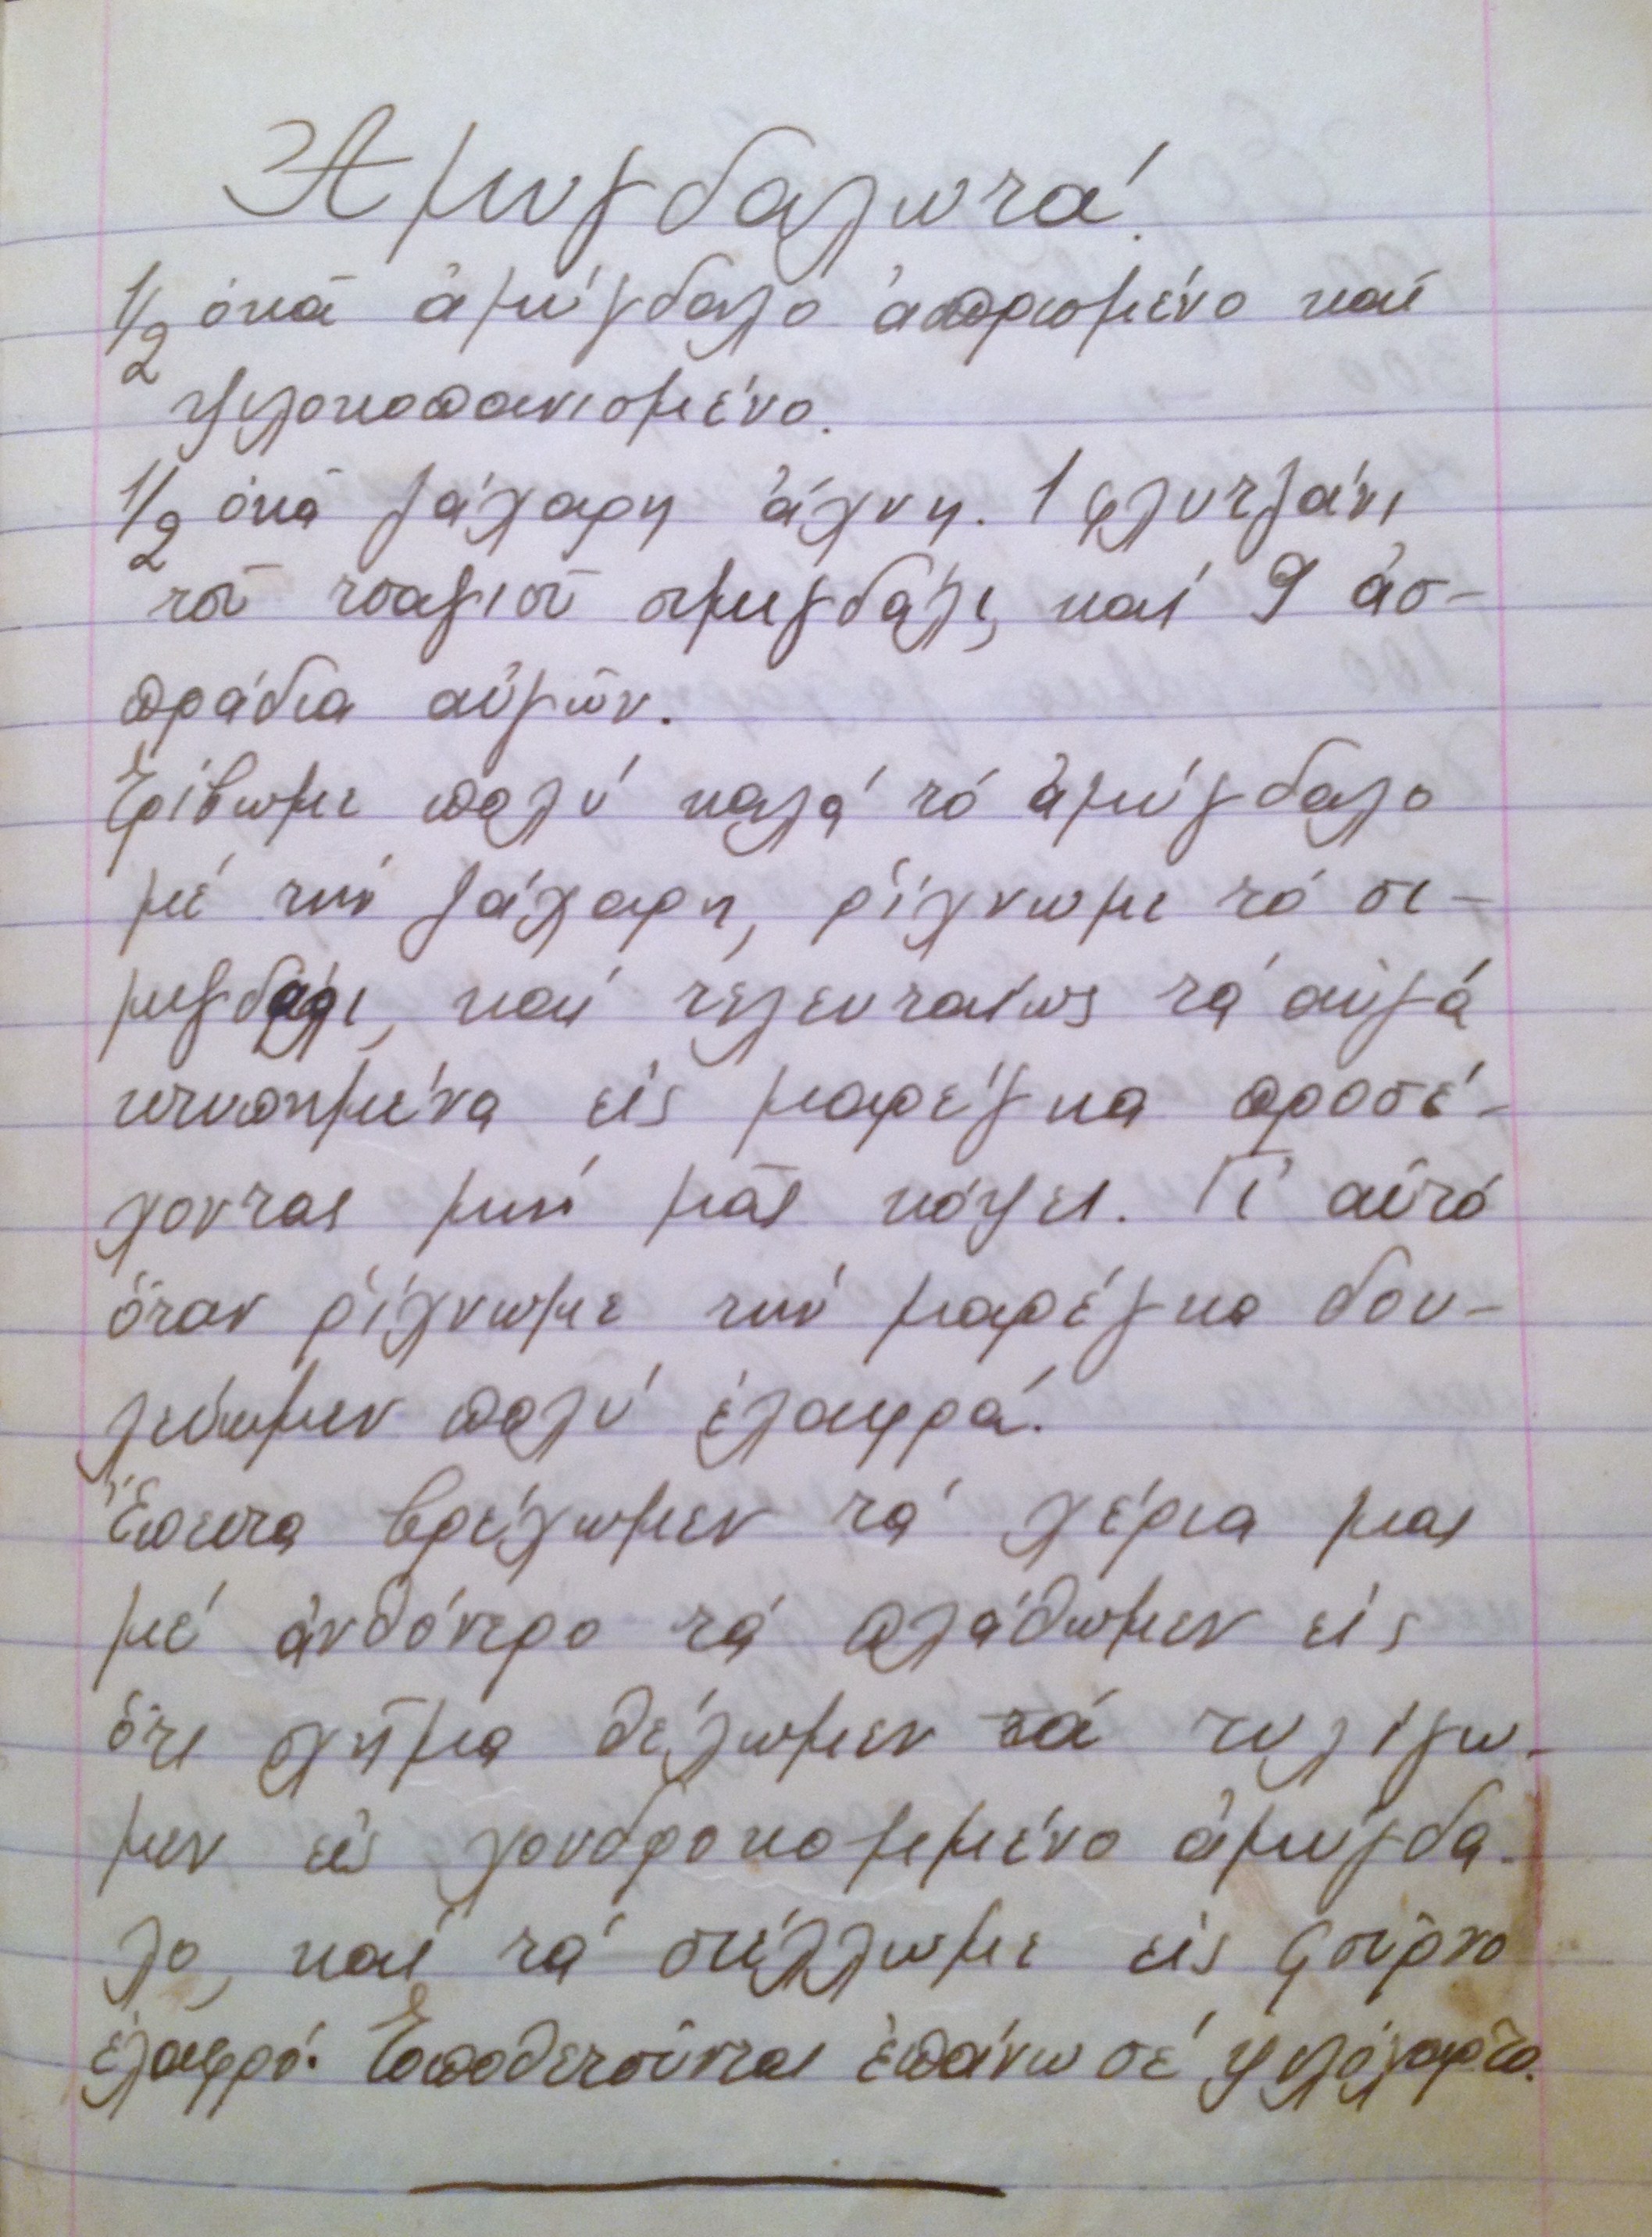 Ἀμυγδαλωτά.
1/2 ὀκᾶ ἀμύγδαλο ἀσπρισμένο καί
ψιλοκοπανισμένο.
1/2 ὀκᾶ ζάχαρη ἄχνη. 1 φλυτζάνι
τοῦ τσαγιοῦ σιμιγδάλι, καί 9 ἀσ-
πράδια αὐγῶν.
Τρίβωμε πολύ καλά τό ἀμύγδαλο
μέ τήν ζάχαρη, ρίχνωμε τό σι-
μιγδάλι, καί τελευταίως τά αὐγά
κτυπημένα εἰς μαρέγκα προσέ-
χοντας μήν μᾶς κόψει. Γι' αὐτό
ὅταν ρίχνωμε τήν μαρέγκα δου-
λεύωμεν πολύ ἐλαφρά.
Ἔπειτα βρέχωμεν τά χέρια μας
μέ ἀνθόνερο τά πλάθωμεν εἰς
ὅτι σχῆμα θέλωμεν τά τυλίγω-
μεν εἰς χονδροκομμένο ἀμύγδα-
λο, καί τά στέλλωμε εἰς φοῦρνο
ἐλαφρό. Τοποθετοῦνται ἐπάνω σέ ψιλόχαρτο.